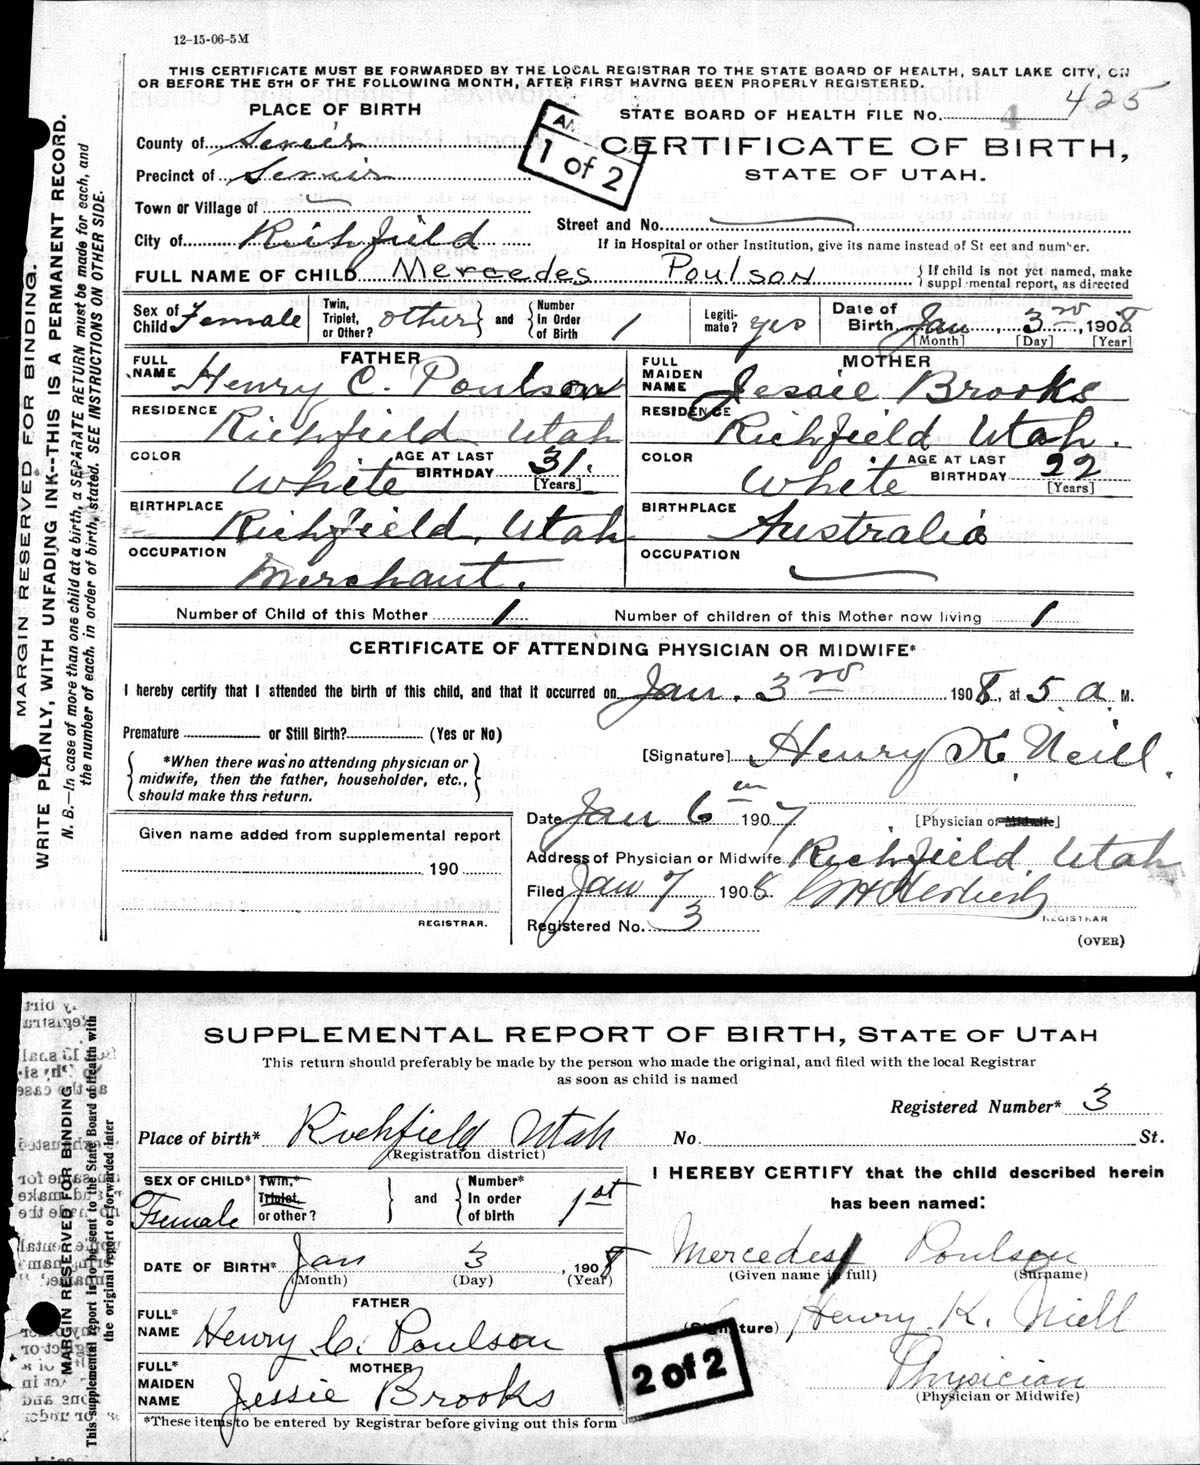 12-15-06-5M
THIS CERTIFICATE MUST BE FORWARDED BY THE LOCAL REGISTRAR TO THE STATE BOARD OF HEALTH, SALT LAKE CITY, ON
OR BEFORE THE 5TH OF THE FOLLOWING MONTH, AFTER FIRST HAVING BEEN PROPERLY REGISTERED.
PLACE OF BIRTH
STATE BOARD OF HEALTH FILE No. 4 425
1 of 2
CERTIFICATE OF BIRTH,
STATE OF UTAH.
County of Sevier
Precinct of Sevier
Town or Village of
Street and No.
City of Richfield
If in Hospital or other Institution, give its name instead of St eet and number.
FULL NAME OF CHILD Mercedes Poulson
{ If child is not yet named, make
supplemental report, as directed
Sex of Child Female
Twin, Triplet, or Other? other } and { Number In Order of Birth 1
Legiti-mate? yes
Date of Birth Jan, 3rd, 1908
[Month] [Day] [Year]
FATHER
FULL NAME Henry C. Poulson
RESIDENCE Richfield Utah
COLOR White AGE AT LAST BIRTHDAY 31. [Years]
BIRTHPLACE Richfield, Utah
OCCUPATION Merchant.
MOTHER
FULL MAIDEN NAME Jessie Brooks
RESIDENCE Richfield Utah.
COLOR White AGE AT LAST BIRTHDAY 22 [Years]
BIRTHPLACE Australia
OCCUPATION
Number of Child of this Mother 1 Number of children of this Mother now living 1
CERTIFICATE OF ATTENDING PHYSICIAN OR MIDWIFE*
I hereby certify that I attended the birth of this child, and that it occurred on Jan. 3rd 1908, at 5 a. M.
Premature or Still Birth? (Yes or No)
{ *When there was no attending physician or
midwife, then the father, householder, etc.,
should make this return. }
[Signature] Henry K. Neill.
Date Jan 6th 1907
[Physician or Midwife]
Given name added from supplemental report
190
REGISTRAR.
Address of Physician or Midwife Richfield Utah
Filed Jan 7 1908
REGISTRAR
Registered No. 3
(OVER)
MARGIN RESERVED FOR BINDING.
WRITE PLAINLY, WITH UNFADING INK--THIS IS A PERMANENT RECORD.
N. B.—In case of more than one child at a birth, a SEPARATE RETURN must be made for each, and
the number of each, in order of birth, stated. SEE INSTRUCTIONS ON OTHER SIDE.
SUPPLEMENTAL REPORT OF BIRTH, STATE OF UTAH
This return should preferably be made by the person who made the original, and filed with the local Registrar
as soon as child is named
Registered Number* 3
Place of birth* Richfield Utah No. St.
(Registration district)
SEX OF CHILD* Female
Twin,* Triplet, or other? } and { Number* In order of birth 1st
DATE OF BIRTH* Jan 3, 1908
(Month) (Day) (Year)
FATHER
FULL* NAME Henry C. Poulson
MOTHER
FULL* MAIDEN NAME Jessie Brooks
*These items to be entered by Registrar before giving out this form
I HEREBY CERTIFY that the child described herein
has been named:
Mercedes Poulson
(Given name in full) (Surname)
(Signature) Henry K. Niell
Physician
(Physician or Midwife)
2 of 2
MARGIN RESERVED FOR BINDING
This supplemental report is to be sent to the State Board of Health with
the original report or forwarded later